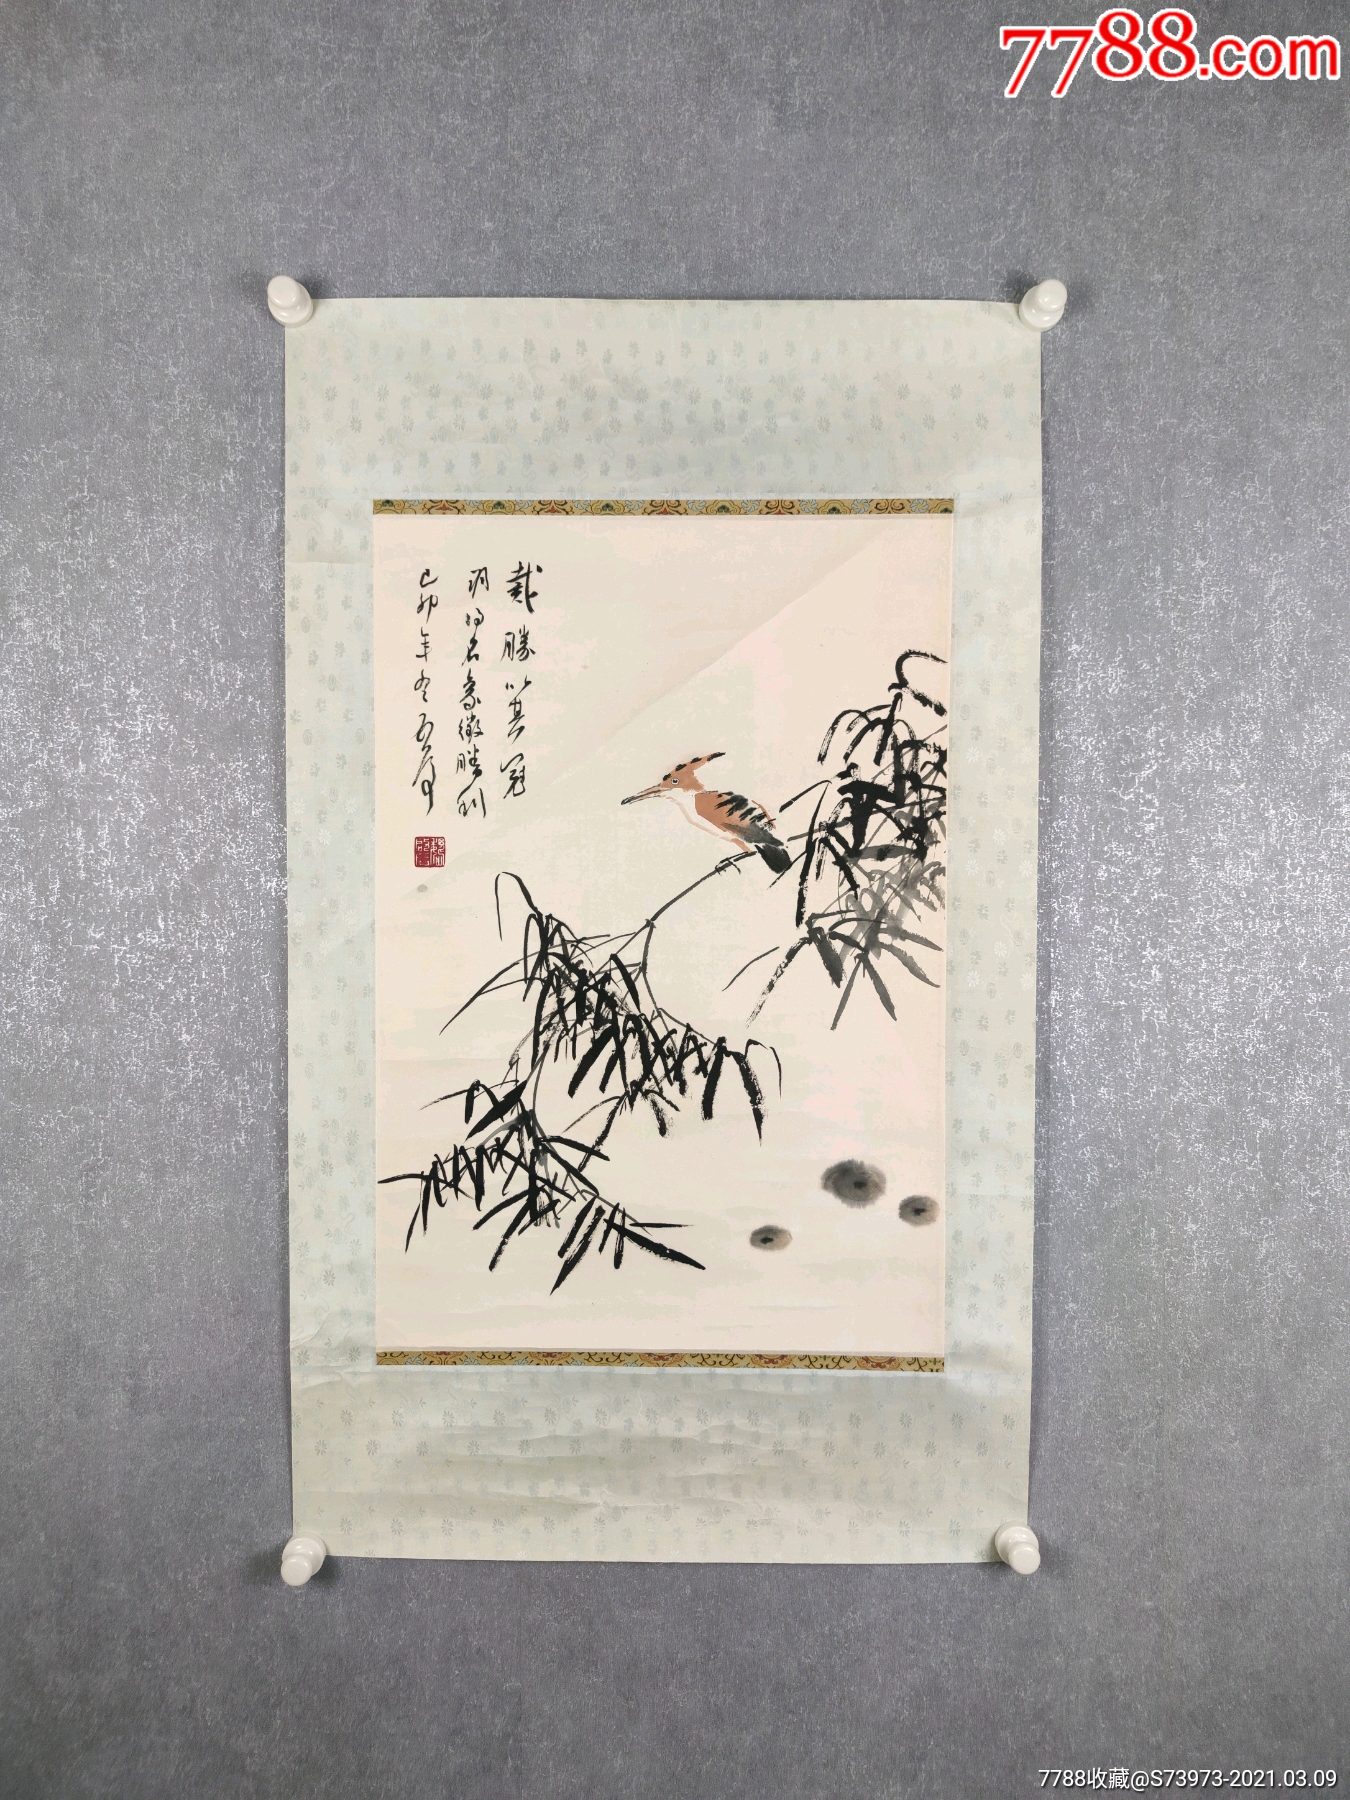 7788.com
戴勝以其冠
羽得名象徵勝利
己卯年冬
7788收藏@S73973-2021.03.09